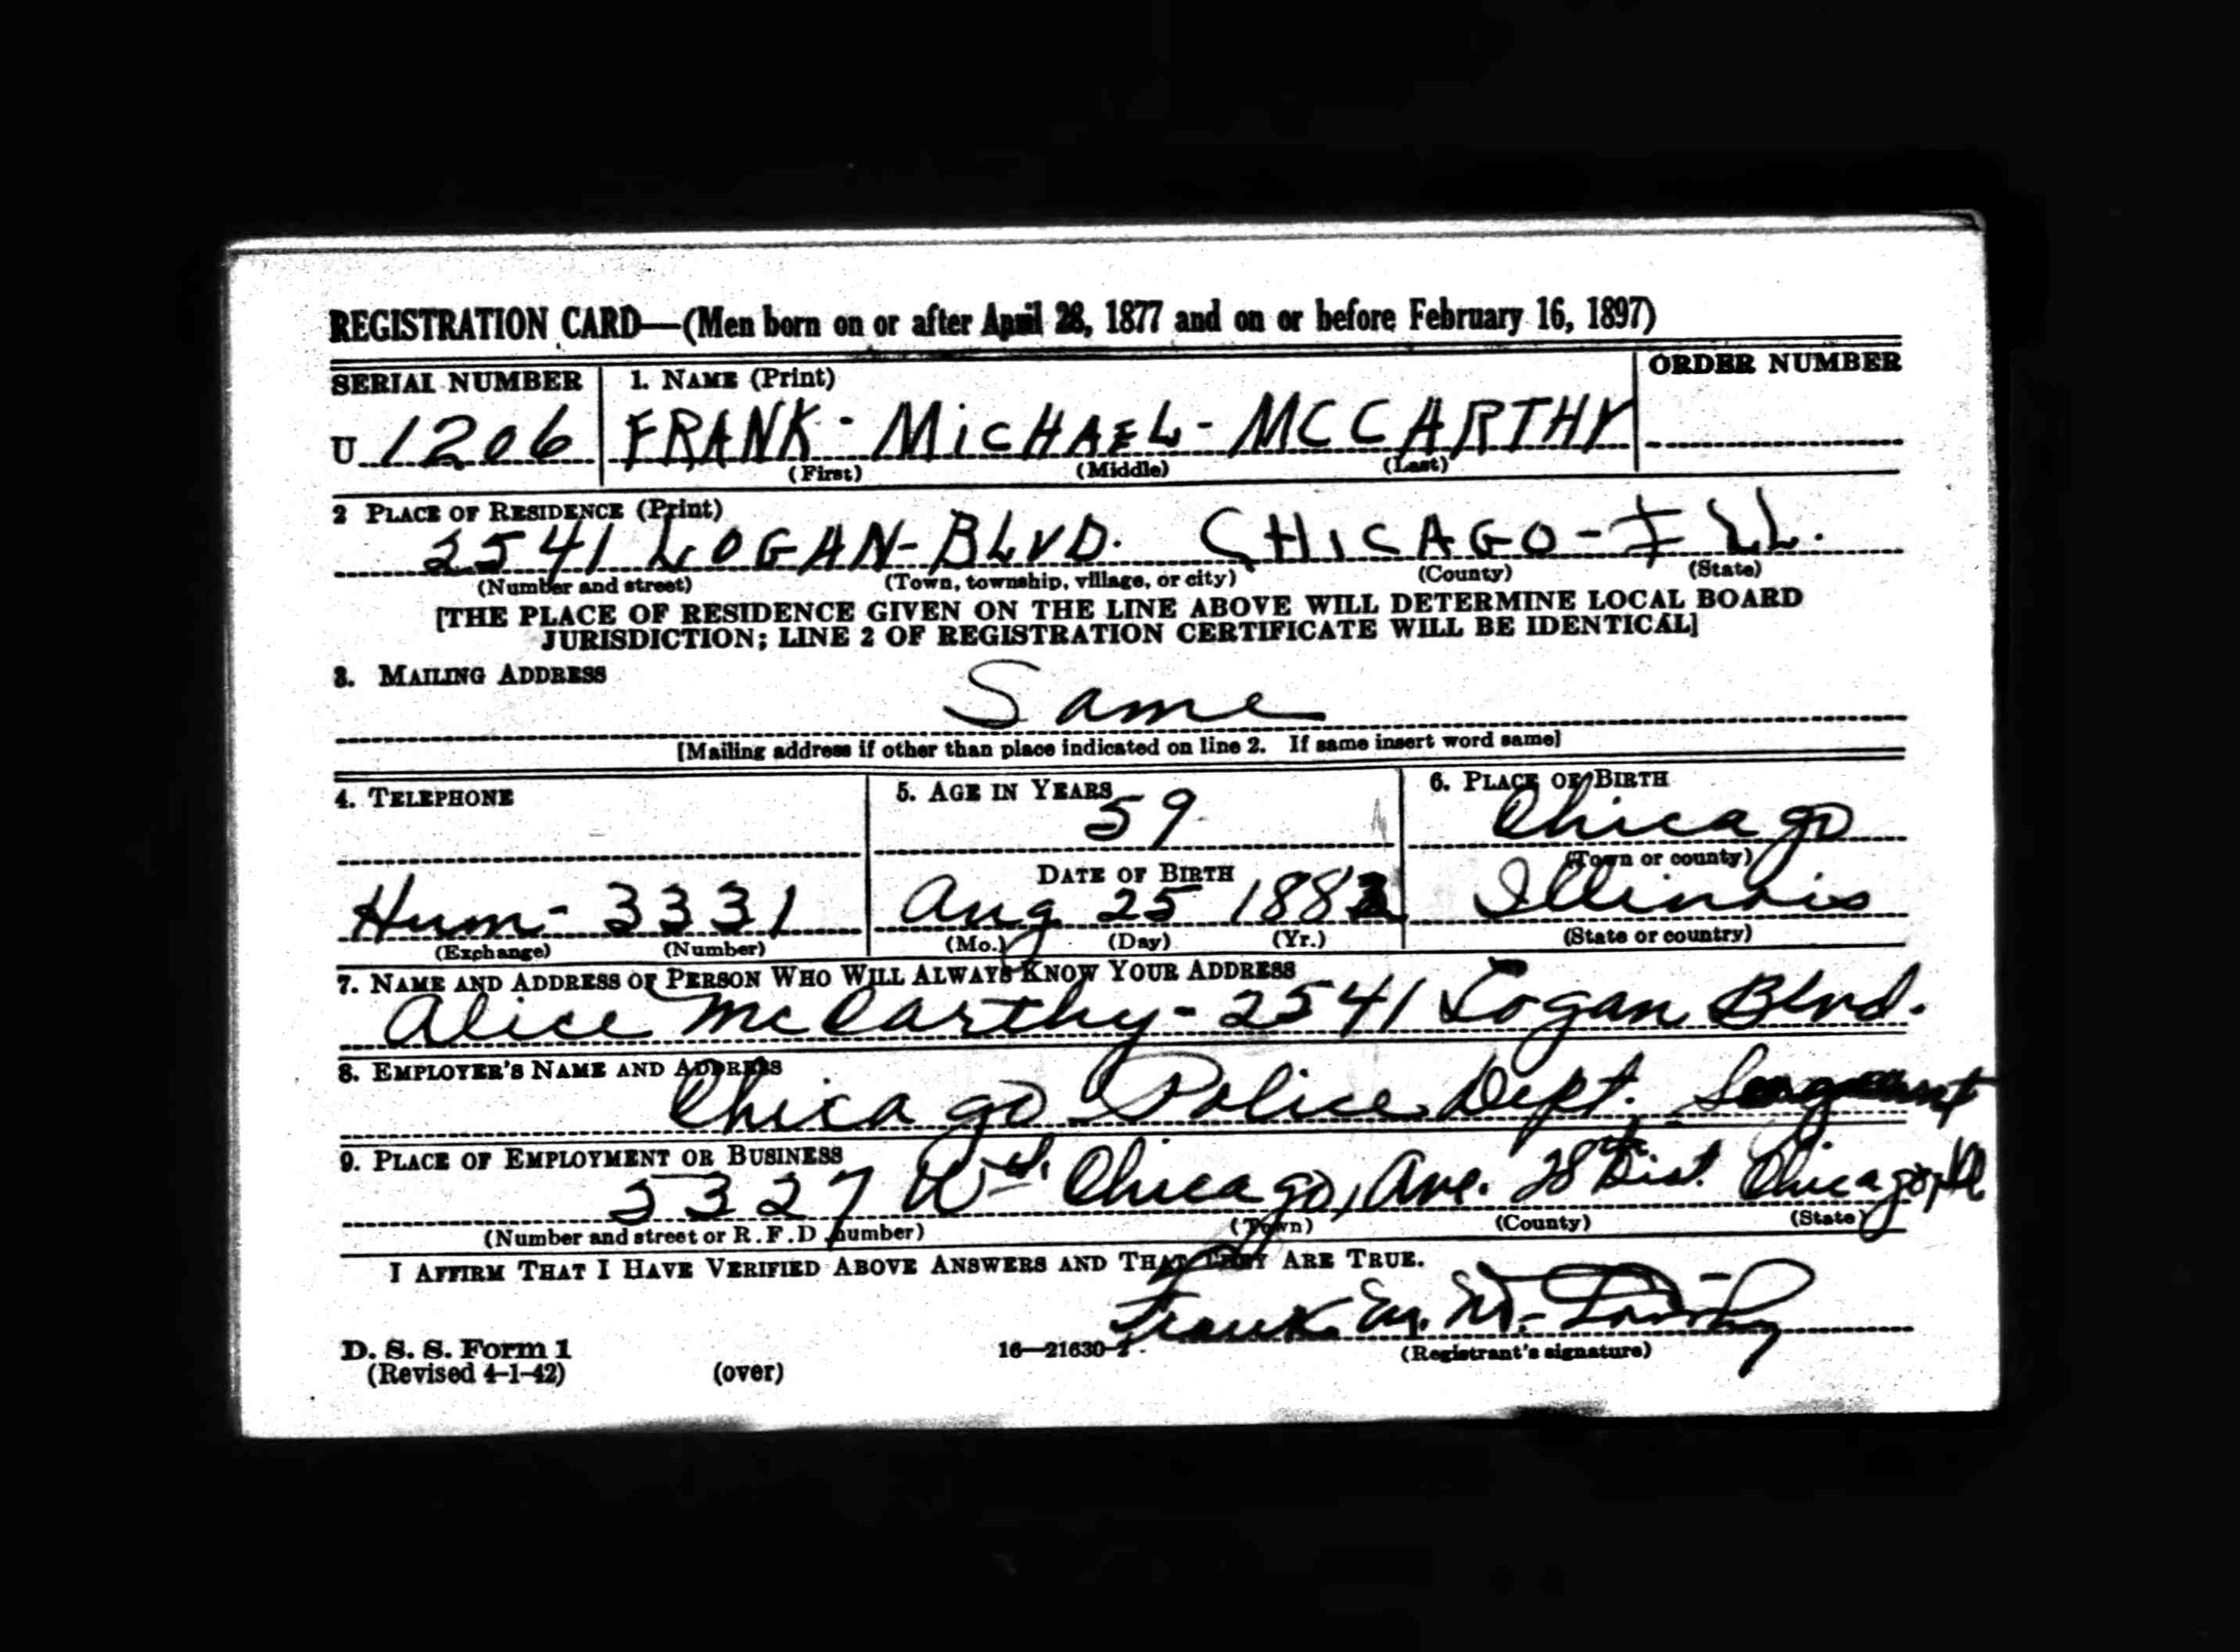 REGISTRATION CARD—(Men born on or after April 28, 1877 and on or before February 16, 1897)
SERIAL NUMBER 1. NAME (Print) ORDER NUMBER
U 1206 FRANK - MiCHAEL - MCCARTHY
(First) (Middle) (Last)
2 PLACE OF RESIDENCE (Print)
2541 LOGAN-BLVD. CHICAGO-ILL.
(Number and street) (Town, township, village, or city) (County) (State)
[THE PLACE OF RESIDENCE GIVEN ON THE LINE ABOVE WILL DETERMINE LOCAL BOARD
JURISDICTION; LINE 2 OF REGISTRATION CERTIFICATE WILL BE IDENTICAL]
3. MAILING ADDRESS
Same
[Mailing address if other than place indicated on line 2. If same insert word same]
4. TELEPHONE 5. AGE IN YEARS 6. PLACE OF BIRTH
59 Chicago
DATE OF BIRTH (Town or county)
Hum - 3331 Aug 25 1882 Illinois
(Exchange) (Number) (Mo.) (Day) (Yr.) (State or country)
7. NAME AND ADDRESS OF PERSON WHO WILL ALWAYS KNOW YOUR ADDRESS
Alice McCarthy - 2541 Logan Blvd.
8. EMPLOYER'S NAME AND ADDRESS
Chicago Police Dept. Sergeant
9. PLACE OF EMPLOYMENT OR BUSINESS
5327 Chicago, Ave. 28th Dist. Chicago, Ill
(Number and street or R.F.D number) (Town) (County) (State)
I AFFIRM THAT I HAVE VERIFIED ABOVE ANSWERS AND THAT THEY ARE TRUE.
Frank M. McCarthy
D. S. S. Form 1 16—21630-2 (Registrant's signature)
(Revised 4-1-42) (over)